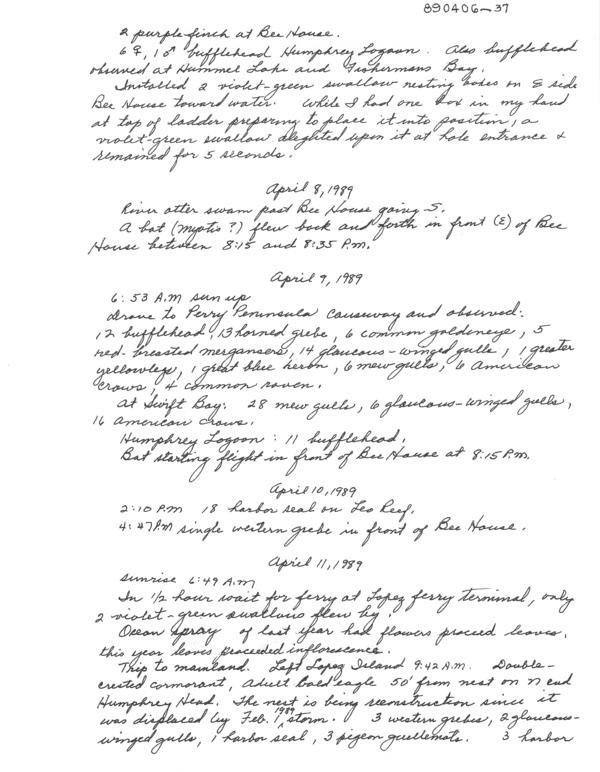 890406-37
2 purple finch at Bee House.
6 ♀, 1 ♂ bufflehead Humphrey Lagoon. Also bufflehead
observed at Hummel Lake and Fishermans Bay.
Installed 2 violet-green swallow nesting boxes on E side
Bee House toward water. While I had one box in my hand
at top of ladder preparing to place it into position, a
violet-green swallow alighted upon it at hole entrance &
remained for 5 seconds.
April 8, 1989
River otter swam past Bee House going S.
A bat (Myotis?) flew back and forth in front (E) of Bee
House between 8:15 and 8:35 P.m.
April 9, 1989
6:53 A.M sun up
drove to Perry Peninsula causeway and observed:
12 bufflehead, 13 horned grebe, 6 common goldeneye, 5
red-breasted mergansers, 14 glaucous-winged gulls, 1 greater
yellowlegs, 1 great blue heron, 6 mew gulls, 6 American
crows, 4 common raven.
At Swift Bay: 28 mew gulls, 6 glaucous-winged gulls,
16 American crows.
Humphrey Lagoon: 11 bufflehead.
Bat starting flight in front of Bee House at 8:15 P.m.
April 10, 1989
2:10 P.M 18 harbor seal on Leo Reef.
4:47 P.M single western grebe in front of Bee House.
April 11, 1989
sunrise 6:49 A.M
In 1/2 hour wait for ferry at Lopez ferry terminal, only
2 violet-green swallows flew by.
Ocean spray of last year had flowers proceed leaves,
this year leaves proceeded inflorescence.
Trip to mainland. Left Lopez Island 9:42 A.M. Double-
crested cormorant, Adult bald eagle 50' from nest on N end
Humphrey Head. The nest is being reconstruction since it
was displaced by Feb. 1, 1989 storm. 3 western grebes, 2 glaucous-
winged gulls, 1 harbor seal, 3 pigeon guillemots. 3 harbor